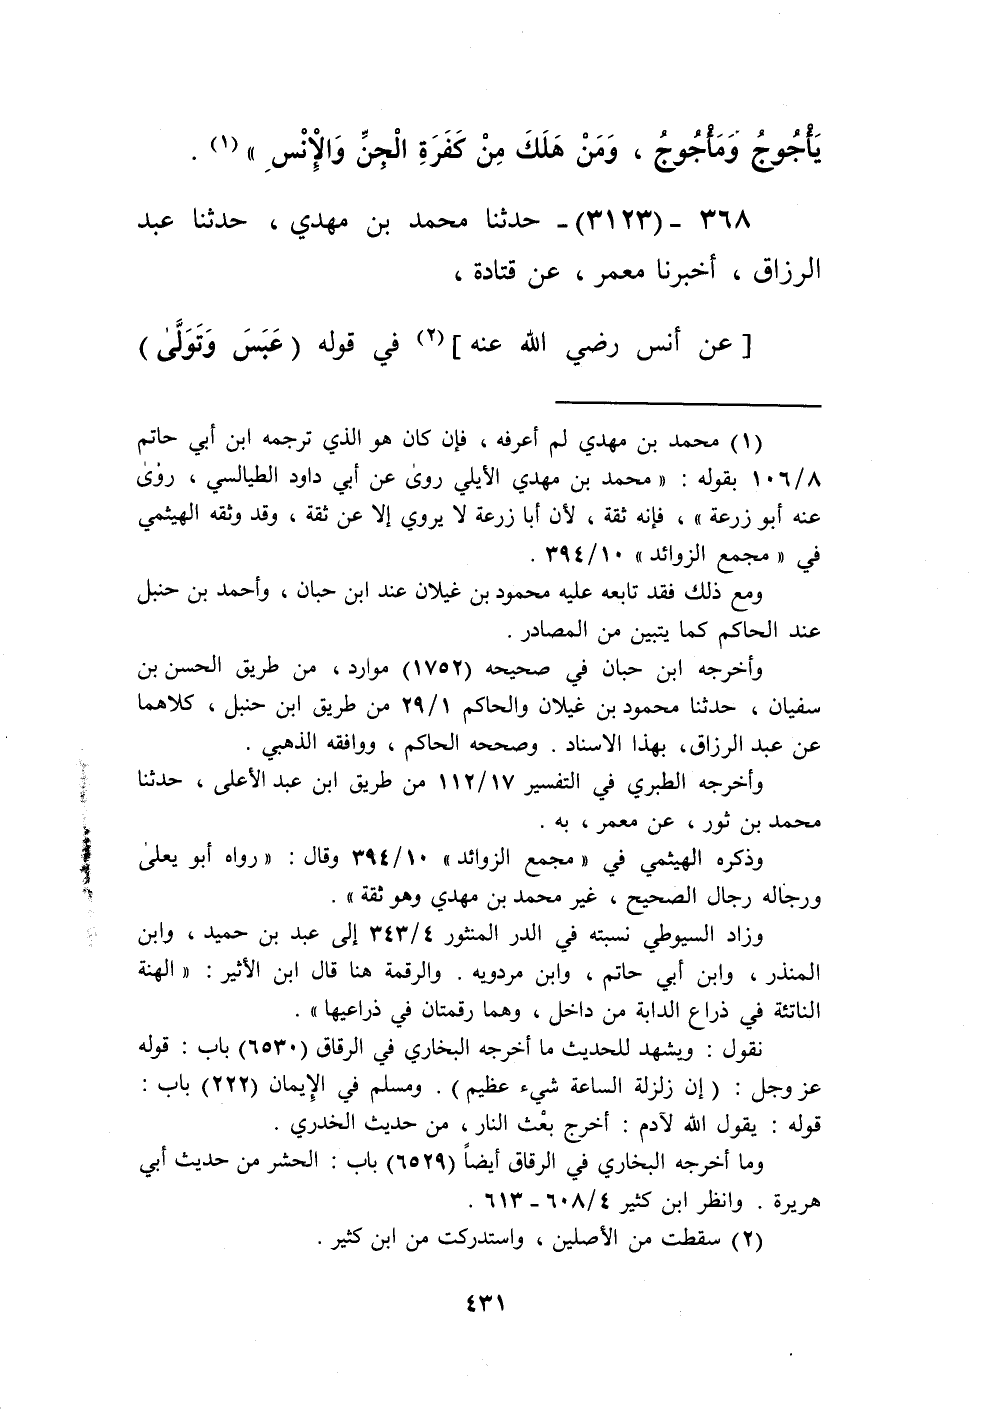 يَأْجُوجُ وَمَأْجُوجُ ، وَمَنْ هَلَكَ مِنْ كَفَرَةِ الْجِنِّ وَالْإِنْسِ » (١) .
٣٦٨ ـ (٣١٢٣) ـ حدثنا محمد بن مهدي ، حدثنا عبد
الرزاق ، أخبرنا معمر ، عن قتادة ،
[ عن أنس رضي الله عنه ] (٢) في قوله ( عَبَسَ وَتَوَلَّىٰ )
(١) محمد بن مهدي لم أعرفه ، فإن كان هو الذي ترجمه ابن أبي حاتم
١٠٦/٨ بقوله : « محمد بن مهدي الأيلي روىٰ عن أبي داود الطيالسي ، روىٰ
عنه أبو زرعة » ، فإنه ثقة ، لأن أبا زرعة لا يروي إلا عن ثقة ، وقد وثقه الهيثمي
في « مجمع الزوائد » ٣٩٤/١٠ .
ومع ذلك فقد تابعه عليه محمود بن غيلان عند ابن حبان ، وأحمد بن حنبل
عند الحاكم كما يتبين من المصادر .
وأخرجه ابن حبان في صحيحه (١٧٥٢) موارد ، من طريق الحسن بن
سفيان ، حدثنا محمود بن غيلان والحاكم ٢٩/١ من طريق ابن حنبل ، كلاهما
عن عبد الرزاق، بهذا الاسناد . وصححه الحاكم ، ووافقه الذهبي .
وأخرجه الطبري في التفسير ١١٢/١٧ من طريق ابن عبد الأعلى ، حدثنا
محمد بن ثور ، عن معمر ، به .
وذكره الهيثمي في « مجمع الزوائد » ٣٩٤/١٠ وقال : « رواه أبو يعلىٰ
ورجاله رجال الصحيح ، غير محمد بن مهدي وهو ثقة » .
وزاد السيوطي نسبته في الدر المنثور ٣٤٣/٤ إلى عبد بن حميد ، وابن
المنذر ، وابن أبي حاتم ، وابن مردويه . والرقمة هنا قال ابن الأثير : « الهنة
الناتئة في ذراع الدابة من داخل ، وهما رقمتان في ذراعيها » .
نقول : ويشهد للحديث ما أخرجه البخاري في الرقاق (٦٥٣٠) باب : قوله
عز وجل : ( إن زلزلة الساعة شيء عظيم ) . ومسلم في الإِيمان (٢٢٢) باب :
قوله : يقول الله لآدم : أخرج بعْث النار ، من حديث الخدري .
وما أخرجه البخاري في الرقاق أيضاً (٦٥٢٩) باب : الحشر من حديث أبي
هريرة . وانظر ابن كثير ٦٠٨/٤ ـ ٦١٣ .
(٢) سقطت من الأصلين ، واستدركت من ابن كثير .
٤٣١